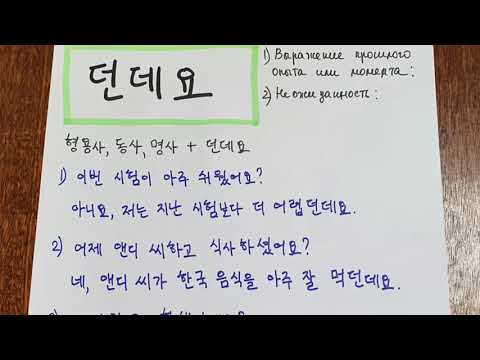 던데요
1) Выражение прошлого
опыта или момента:
2) Неожиданность:
형용사, 동사, 명사 + 던데요
1) 이번 시험이 아주 쉬웠어요?
아니요, 저는 지난 시험보다 더 어렵던데요.
2) 어제 앤디 씨하고 식사하셨어요?
네, 앤디 씨가 한국 음식을 아주 잘 먹던데요.